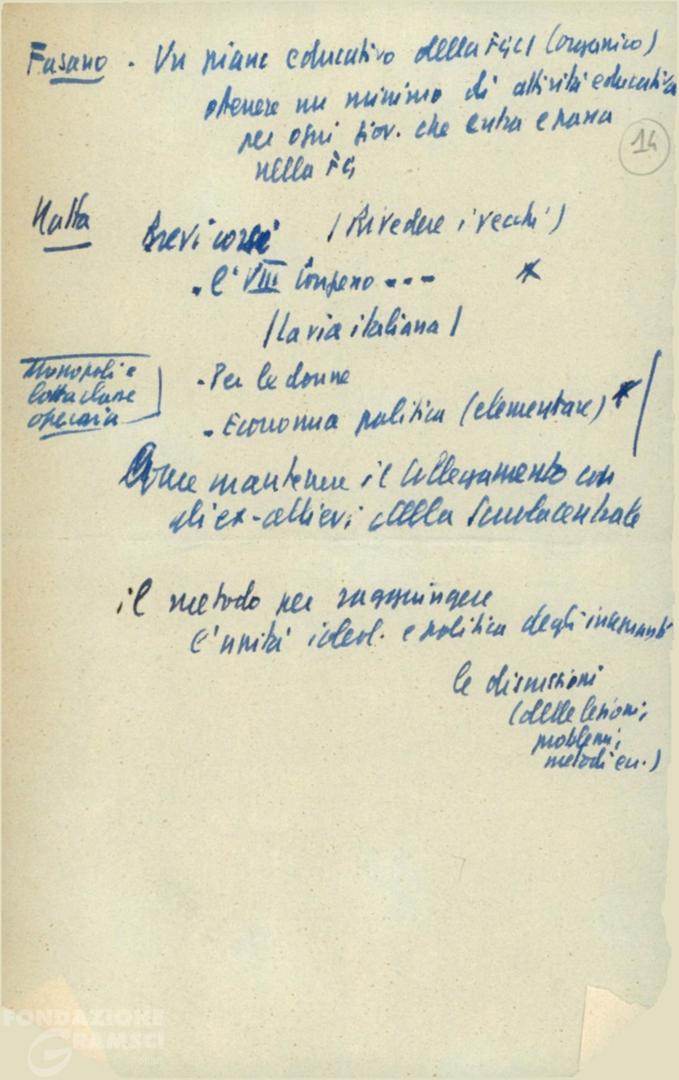 Fasano - Un piano educativo della FGCI (organico)
ottenere un minimo di attività educativa
per ogni giov. che entra e passa
nella FG
14
Natta
Brevi corsi (Rivedere i vecchi)
- l'VIII Congresso ---
(La via italiana)
Monopoli e
lotta classe
operaia
- Per le donne
- Economia politica (elementare)
Come mantenere il collegamento con
gli ex-allievi della Scuola centrale
il metodo per raggiungere
l'unità ideol. e politica degli insegnanti
le discussioni
(delle lezioni,
problemi,
metodi ecc.)
FONDAZIONE
GRAMSCI